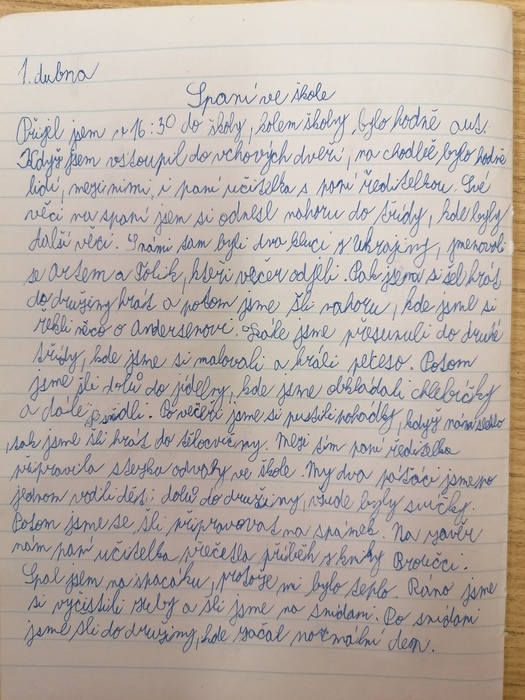 1. dubna
Spaní ve škole
Přijel jsem v 16:30 do školy, kolem školny, bylo hodně aut.
Když jsem vstoupil do vchových dveří, na chodbě bylo hodně
lidí, mezi nimi, i paní učitelka s paní ředitelkou. Své
věci na spaní jsem si odnesl nahoru do třídy, kde byly
další věci. S námi tam byli dva kluci z Ukrajiny, jmenovali
se Artem a Tolik, kteří večer odjeli. Pak jsem si šel hrát
do družiny hrát a potom jsme šli nahoru, kde jsme si
řekli něco o Andersenovi. Dále jsme přesunuli do druhé
třídy, kde jsme si malovali a hráli pexeso. Potom
jsme šli dolů do jídelny, kde jsme obkládali chlebíčky
a dále jedli. Po večeři jsme si pustili pohádky, když nám
tak jsme šli hrát do tělocvičny. Mezi tím paní ředitelka
připravila stezka odvahy ve škole. My dva páťáci jsme po
jednom vodili děti dolů do družiny, všude byly svíčky.
Potom jsme se šli připravovat na spánek. Na závěr
nám paní učitelka přečetla příběh z knihy Broučci.
Spal jsem na spacáku, protože mi bylo teplo. Ráno jsme
si vyčistili zuby a šli jsme na snídani. Po snídani
jsme šli do družiny, kde začal normální den.